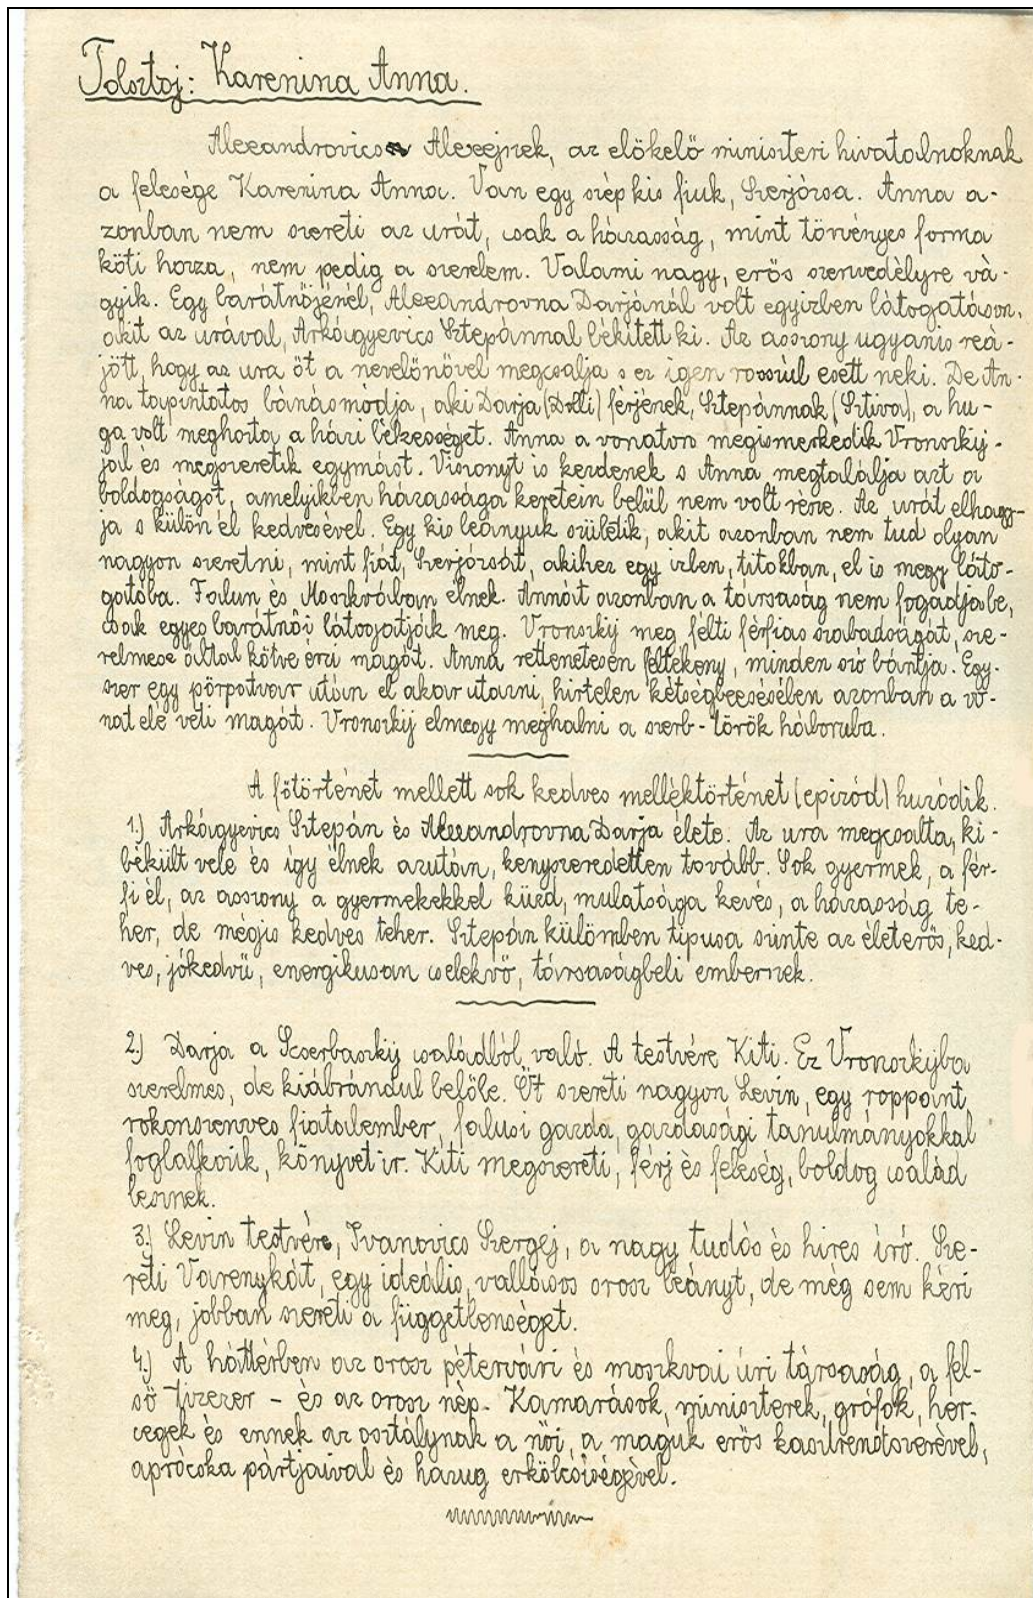 Tolsztoj: Karenina Anna.
Alexandrovics Alexejnek, az előkelő miniszteri hivatalnoknak
a felesége Karenina Anna. Van egy szép kis fiuk, Szerjózsa. Anna a-
zonban nem szereti az urát, csak a házasság, mint törvényes forma
köti hozza, nem pedig a szerelem. Valami nagy, erős szenvedélyre vá-
gyik. Egy barátnőjénél, Alexandrovna Darjánál volt egyizben látogatóson,
akit az urával, Arkágyevics Sztepánnal békitett ki. Az asszony ugyanis reá-
jött, hogy az ura őt a nevelőnővel megcsalja s ez igen rosszúl esett neki. De An-
na tapintatos bánásmódja, aki Darja (Dolli) férjének, Sztepánnak (Sztiva), a hu-
ga volt meghozta a házi békességet. Anna a vonaton megismerkedik Vronszkij-
jal és megszeretik egymást. Viszonyt is kezdenek s Anna megtalálja azt a
boldogságot, amelyikben házassága keretein belül nem volt része. Az urát elhagy-
ja s külön él kedvesével. Egy kis leányuk születik, akit azonban nem tud olyan
nagyon szeretni, mint fiát, Szerjózsát, akihez egy izben, titokban, el is megy láto-
gatóba. Falun és Moszkvában élnek. Annát azonban a társaság nem fogadja be,
csak egyes barátnői látogatják meg. Vronszkij meg félti férfias szabadságát, sze-
relmese által kötve érzi magát. Anna rettenetesen féltékeny, minden szó bántja. Egy-
szer egy pörpatvar után el akar utazni, hirtelen kétségbeesésében azonban a vo-
nat elé veti magát. Vronszkij elmegy meghalni a szerb-török háboruba.
A főtörténet mellett sok kedves melléktörténet (epizód) huzódik.
1.) Arkágyevics Sztepán és Alexandrovna Darja élete. Az ura megcsalta, ki-
békült vele és így élnek azután, kényszeredetten tovább. Sok gyermek, a fér-
fi él, az asszony a gyermekekkel küzd, mulatsága kevés, a házasság te-
her, de mégis kedves teher. Sztepán külömben tipusa szinte az életerős, ked-
ves, jókedvü, energikusan cselekvő, társaságbeli embernek.
2.) Darja a Scserbackij családból való. A testvére Kiti. Ez Vronszkijba
szerelmes, de kiábrándul belőle. Őt szereti nagyon Levin, egy roppant
rokonszenves fiatalember, falusi gazda, gazdasági tanulmányokkal
foglalkozik, könyvet ir. Kiti megszereti, férj és feleség, boldog család
lesznek.
3.) Levin testvére, Ivanovics Szergej, a nagy tudós és hires író. Sze-
reti Varenykát, egy ideális, vallásos orosz leányt, de még sem kéri
meg, jobban szereti a függetlenséget.
4.) A háttérben az orosz pétervári és moszkvai úri társaság, a fel-
ső tizezer - és az orosz nép. Kamarások, miniszterek, grófok, her-
cegek és ennek az osztálynak a női, a maguk erős kasztrendszerével,
aprócska pártjaival és hazug erkölcsiségével.